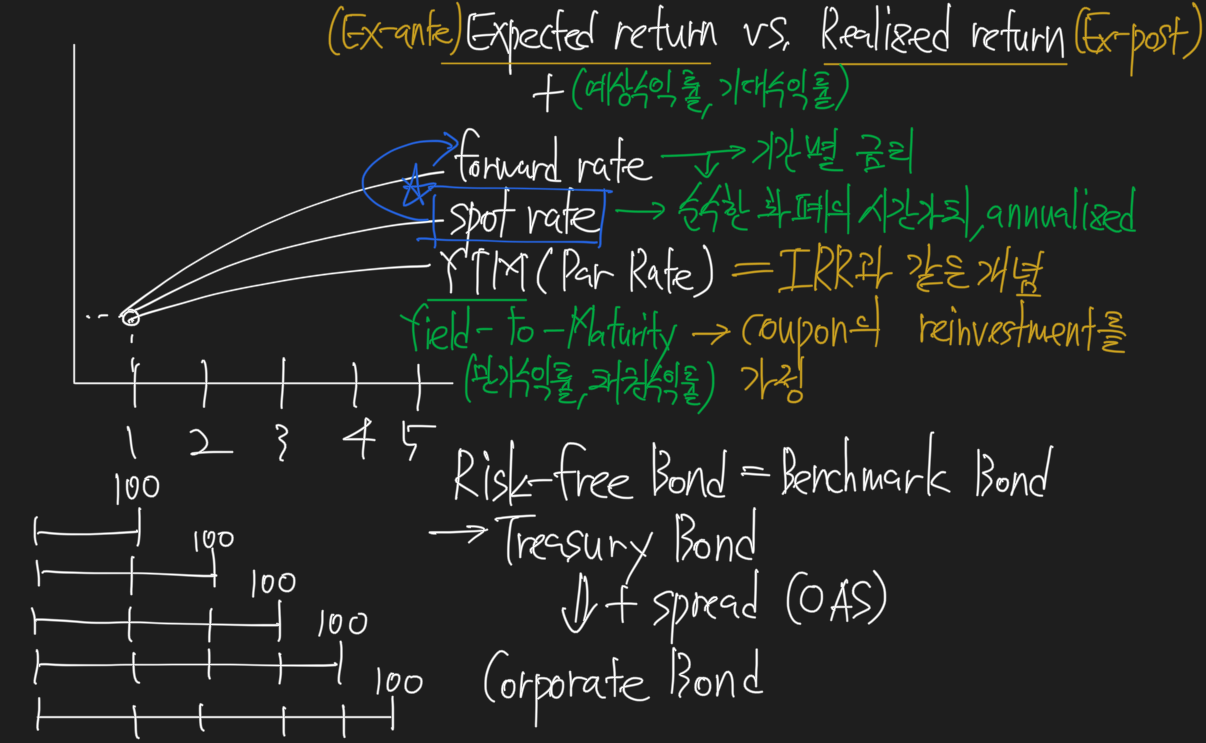 (Ex-ante) Expected return vs. Realized return (Ex-post)
+ (예상수익률, 기대수익률)
forward rate → 기간별 금리
spot rate → 순수한 화폐의 시간가치, annualized
YTM (Par Rate) = IRR과 같은 개념
Yield-to-Maturity → Coupon의 reinvestment를
(만기수익률, 채권수익률) 가정
1 2 3 4 5
Risk-free Bond = Benchmark Bond
100
→ Treasury Bond
100
100
⇓ + spread (OAS)
100
Corporate Bond
100